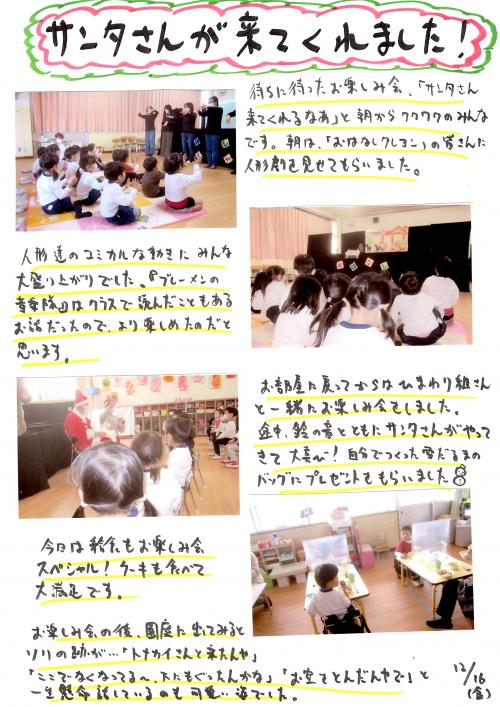 サンタさんが来てくれました!
待ちに待ったお楽しみ会、「サンタさん
来てくれるなあ」と朝からワクワクのみんな
です。朝は、「おはなしクレヨン」の皆さんに
人形劇を見せてもらいました。
人形達のコミカルな動きにみんな
大盛り上がりでした。『ブレーメンの
音楽隊』はクラスで読んだこともある
お話だったので、より楽しめたのだと
思います。
お部屋に戻ってからはひまわり組さん
と一緒にお楽しみ会をしました。
途中、鈴の音とともにサンタさんがやって
きて大喜び!自分でつくった雪だるまの
バッグにプレゼントをもらいました
今日は給食もお楽しみ会
スペシャル!ケーキも食べて
大満足です。
お楽しみ会の後、園庭に出てみると
ソリの跡が…「トナカイさんと来たんや」
「ここでなくなってる〜、下にもぐったんかな」「お空てとんだんやで」と
一生懸命話しているのも可愛い姿でした。
12/16
(金)